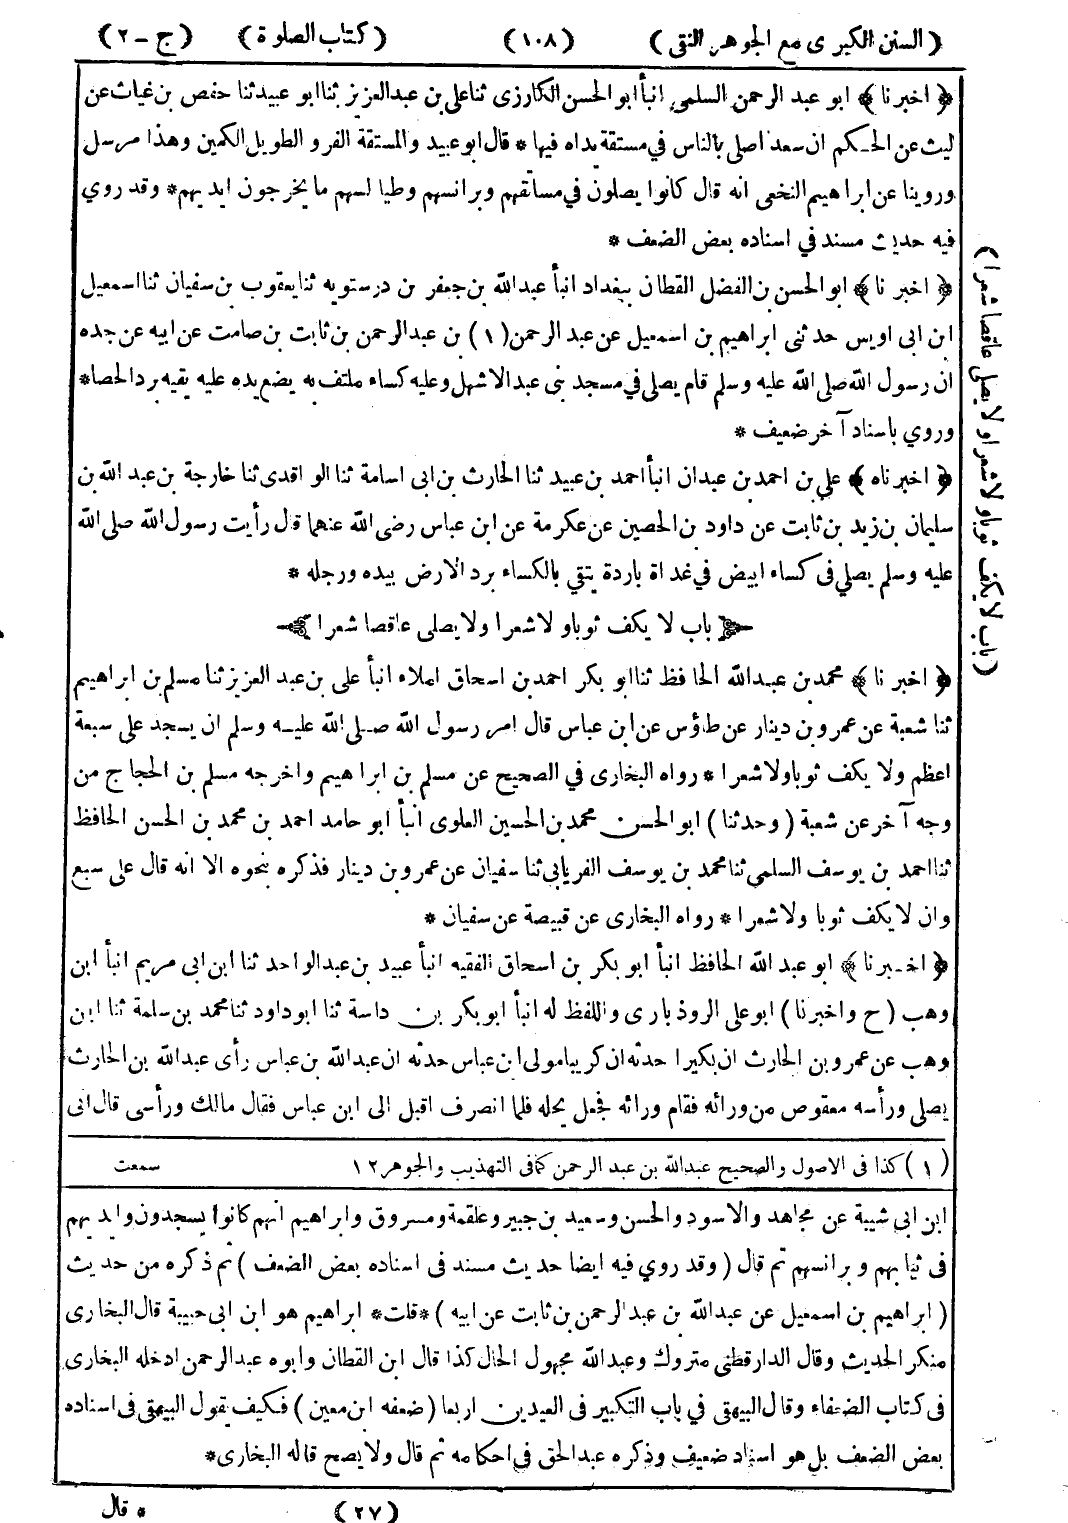 (السنن الكبرى مع الجوهر النقى) (١٠٨) (كتاب الصلوة) (ج - ٢)
﴿اخبرنا﴾ ابو عبد الرحمن السلمى انبأ ابو الحسن الكارزى ثنا على بن عبد العزيز ثنا ابو عبيد ثنا حفص بن غياث عن
ليث عن الحكم ان سعدا صلى بالناس في مستقة يداه فيها * قال ابو عبيد والمستقة الفرو الطويل الكمين وهذا مرسل
وروينا عن ابراهيم النخعى انه قال كانوا يصلون في مساتقهم وبرانسهم وطيالسهم ما يخرجون ايديهم * وقد روي
فيه حديث مسند في اسناده بعض الضعف *
﴿اخبرنا﴾ ابو الحسن بن الفضل القطان ببغداد انبأ عبد الله بن جعفر بن درستويه ثنا يعقوب بن سفيان ثنا اسمعيل
ابن ابى اويس حدثنى ابراهيم بن اسمعيل عن عبد الرحمن (١) بن عبد الرحمن بن ثابت بن صامت عن ابيه عن جده
ان رسول الله صلى الله عليه وسلم قام يصلى في مسجد بنى عبد الاشهل وعليه كساء ملتف به يضع يده عليه يقيه برد الحصا *
وروي باسناد آخر ضعيف *
﴿اخبرناه﴾ علي بن احمد بن عبدان انبأ احمد بن عبيد ثنا الحارث بن ابى اسامة ثنا الواقدى ثنا خارجة بن عبد الله بن
سليمان بن زيد بن ثابت عن داود بن الحصين عن عكرمة عن ابن عباس رضى الله عنهما قال رأيت رسول الله صلى الله
عليه وسلم يصلي فى كساء ابيض في غداة باردة يتقي بالكساء برد الارض بيده ورجله *
باب لا يكف ثوبا ولا شعرا ولا يصلى عاقصا شعرا
(باب لا يكف ثوبا ولا شعرا ولا يصلى عاقصا شعرا)
﴿اخبرنا﴾ محمد بن عبد الله الحافظ ثنا ابو بكر احمد بن اسحاق املاء انبأ على بن عبد العزيز ثنا مسلم بن ابراهيم
ثنا شعبة عن عمرو بن دينار عن طاؤس عن ابن عباس قال امر رسول الله صلى الله عليه وسلم ان يسجد على سبعة
اعظم ولا يكف ثوبا ولا شعرا * رواه البخارى في الصحيح عن مسلم بن ابراهيم واخرجه مسلم بن الحجاج من
وجه آخر عن شعبة (وحدثنا) ابو الحسن محمد بن الحسين العلوى انبأ ابو حامد احمد بن محمد بن الحسن الحافظ
ثنا احمد بن يوسف السلمي ثنا محمد بن يوسف الفريابى ثنا سفيان عن عمرو بن دينار فذكره بنحوه الا انه قال على سبع
وان لا يكف ثوبا ولا شعرا * رواه البخارى عن قبيصة عن سفيان *
﴿اخبرنا﴾ ابو عبد الله الحافظ انبأ ابو بكر بن اسحاق الفقيه انبأ عبيد بن عبد الواحد ثنا ابن ابى مريم انبأ ابن
وهب (ح واخبرنا) ابو على الروذبارى واللفظ له انبأ ابو بكر بن داسة ثنا ابو داود ثنا محمد بن سلمة ثنا ابن
وهب عن عمرو بن الحارث ان بكيرا حدثه ان كريبا مولى ابن عباس حدثه ان عبد الله بن عباس رأى عبد الله بن الحارث
يصلى ورأسه معقوص من ورائه فقام وراءه فجعل يحله فلما انصرف اقبل الى ابن عباس فقال مالك ورأسى قال انى
(١) كذا فى الاصول والصحيح عبد الله بن عبد الرحمن كما فى التهذيب والجوهر ١٢ سمعت
ابن ابي شيبة عن مجاهد والاسود والحسن وسعيد بن جبير وعلقمة ومسروق وابراهيم انهم كانوا يسجدون وايديهم
فى ثيابهم وبرانسهم ثم قال (وقد روي فيه ايضا حديث مسند فى اسناده بعض الضعف) ثم ذكره من حديث
(ابراهيم بن اسمعيل عن عبد الله بن عبد الرحمن بن ثابت عن ابيه) * قلت * ابراهيم هو ابن ابى حبيبة قال البخارى
منكر الحديث وقال الدارقطنى متروك وعبد الله مجهول الحال كذا قال ابن القطان وابوه عبد الرحمن ادخله البخارى
فى كتاب الضعفاء وقال البيهقى في باب التكبير فى العيدين اربعا (ضعفه ابن معين) فكيف يقول البيهقى فى اسناده
بعض الضعف بل هو اسناد ضعيف وذكره عبد الحق في احكامه ثم قال ولا يصح قاله البخارى *
(٢٧) * قال